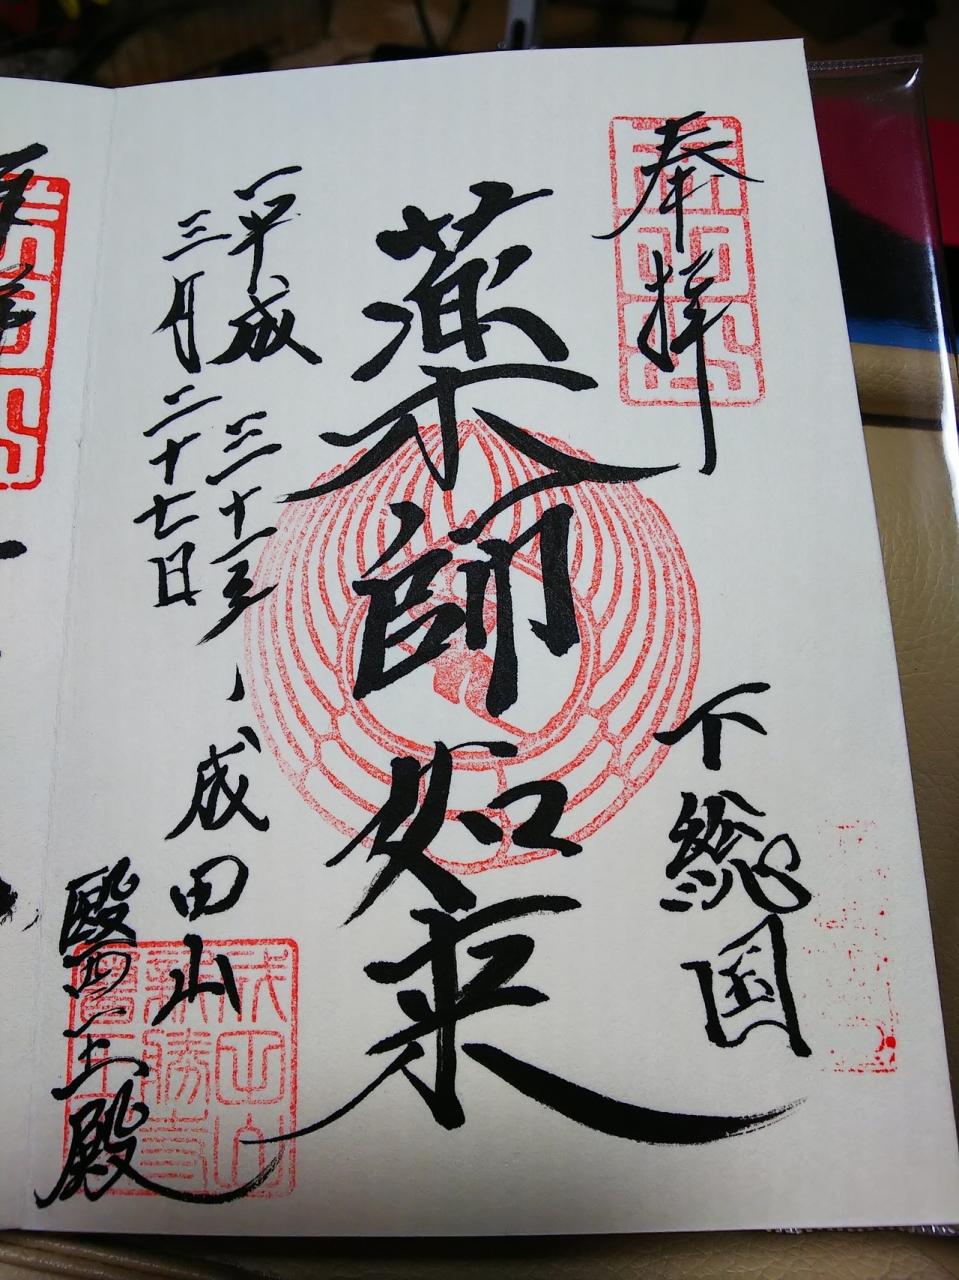 奉拝
下総国
成田山
薬師如来
平成三十一年
三月二十七日
成田山
醫王殿
成田山
新勝寺
醫王殿